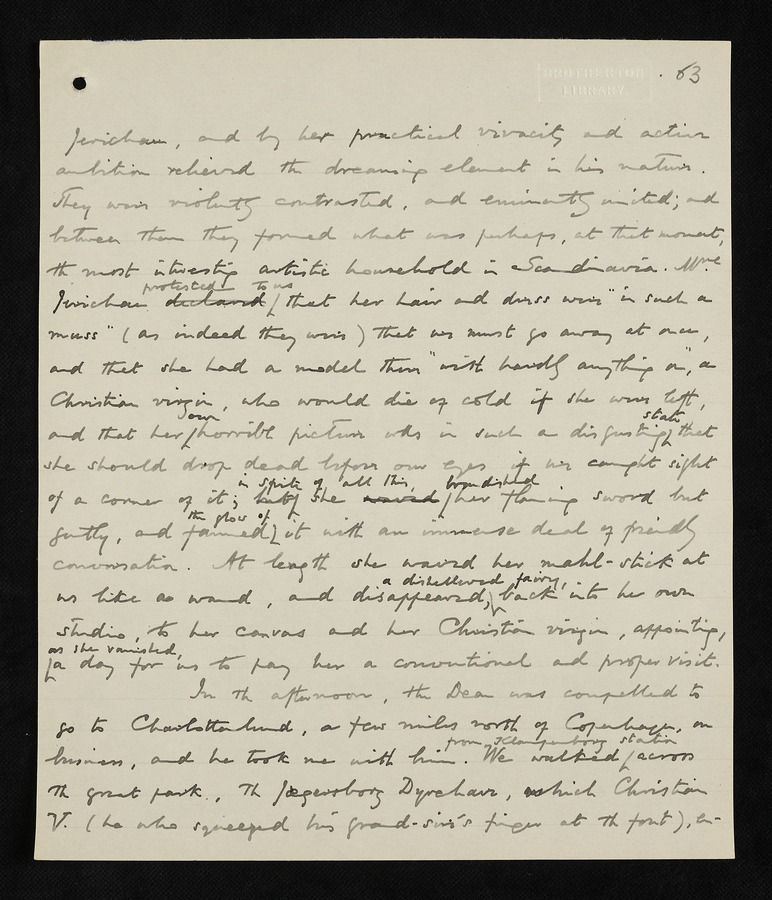 BROTHERTON
LIBRARY
. 63
Jerichau, and by her practical vivacity and active
ambition relieved the dreaming element in his nature.
They were violently contrasted, and eminently united; and
between them they formed what was perhaps, at that moment,
the most interesting artistic household in Scandinavia. Mme
protested to us
Jerichau declared that her hair and dress were "in such a
muss" (as indeed they were) that we must go away at once,
and that she had a model there "with hardly anything on", a
Christian virgin, who would die of cold if she were left,
own state
and that her horrible picture was in such a disgusting that
she should drop dead before our eyes if we caught sight
in spite of all this, brandished
of a corner of it; but she waved her flaming sword but
the glow of
gently, and fanned it with an immense deal of friendly
conversation. At length she waved her mahl-stick at
a dishevelled fairy,
us like a wand, and disappeared, back into her own
studio, to her canvas and her Christian virgin, appointing,
as she vanished,
a day for us to pay her a conventional and proper visit.
In the afternoon, the Dean was compelled to
go to Charlottenlund, a few miles north of Copenhagen, on
from Klampenborg station
business, and he took me with him. We walked across
the great park, the Jægersborg Dyrehave, which Christian
V. (he who squeezed his grand-sire's finger at the font), en-